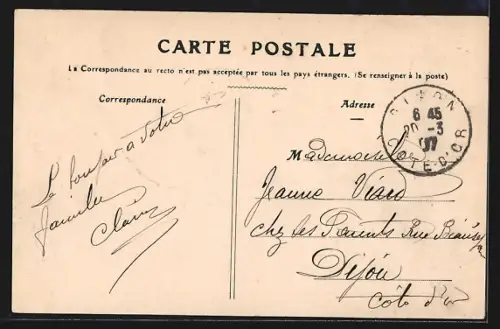 CARTE POSTALE
La Correspondance au recto n'est pas acceptée par tous les pays étrangers. (Se renseigner à la poste)
Correspondance
Adresse
DIJON
6 45
20 -3
07
COTE-D'OR
Le bonjour a votre
famille
Claire
Mademoiselle
Jeanne Viard
chez ses Parents Rue
Dijon
Côte d'or